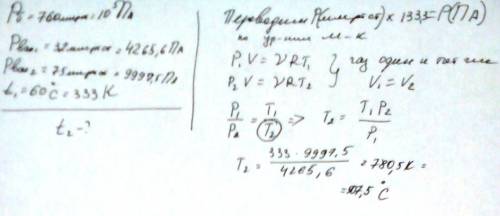 P₀ = 760мм рт ст = 10⁵ Па
Pвак₁ = 32мм рт ст = 4265,6 Па
Pвак₂ = 75мм рт ст = 9997,5 Па
t₁ = 60°C = 333 K
t₂ - ?
Переводим P(мм рт ст) x 133,3 = P(ПА)
по ур-нию М-К
P₁ V = νRT₁ } газ один и тот же
P₂ V = νRT₂ } V₁ = V₂
P₁/P₂ = T₁/T₂ => T₂ = T₁ P₂/P₁
T₂ = 333 · 9997,5/4265,6 = 780,5 K =
= 507,5 °C